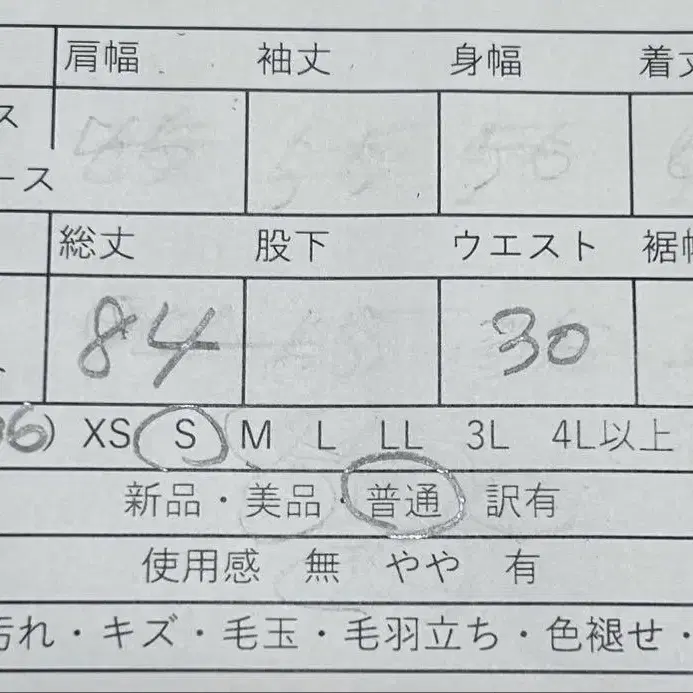 肩幅 袖丈 身幅 着丈
ス
ース
総丈 股下 ウエスト 裾幅
84 30
6) XS S M L LL 3L 4L以上
新品・美品・普通 訳有
使用感 無 やや 有
汚れ・キズ・毛玉・毛羽立ち・色褪せ・